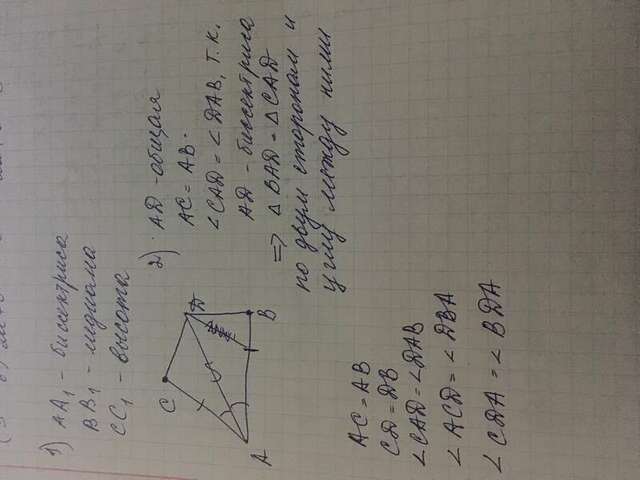 1) AA₁ - биссектриса
BB₁ - медиана
CC₁ - высота
2) AD - общая
AC = AB.
∠CAD = ∠DAB, т.к.
AD - биссектриса
=> △BAD = △CAD
по двум сторонам и
углу между ними
C
D
A
B
AC = AB
CD = DB
∠CAD = ∠DAB
∠ACD = ∠DBA
∠CDA = ∠BDA